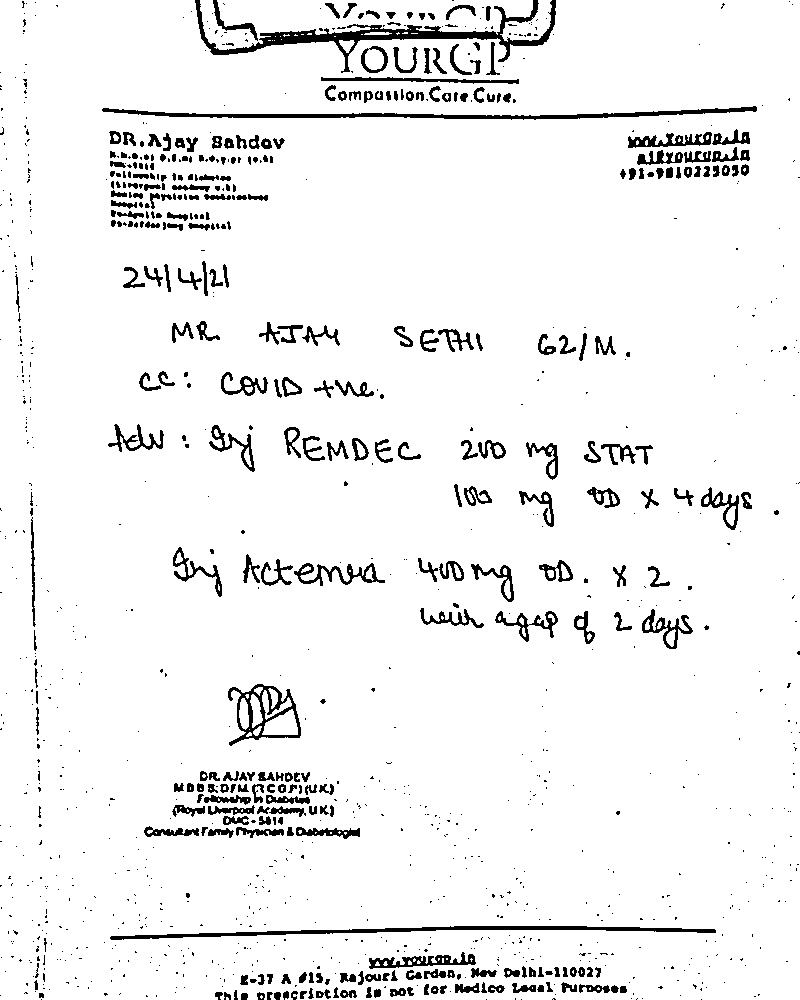 YOURGP
YOURGP
Compassion.Care.Cure.
DR.Ajay Sahdev
Fellowship in diabetes
(liverpool academy u.k)
Senior physician
hospital
Ex-Apollo hospital
Ex-Safdarjung hospital
www.yourgp.in
+91-9810225050
24/4/21
MR. AJAY SETHI 62/M.
CC: COVID +ve.
Adv: Inj REMDEC 200 mg STAT
100 mg OD X 4 days.
Inj Actemra 400mg OD. X 2.
with a gap of 2 days.
DR. AJAY SAHDEV
M B B S, DFM (R C G P) (U.K.)
Fellowship In Diabetes
(Royal Liverpool Academy, U.K.)
DMC - 5814
Consultant Family Physician & Diabetologist
www.yourgp.in
E-37 A #15, Rajouri Garden, New Delhi-110027
This prescription is not for Medico Legal Purposes